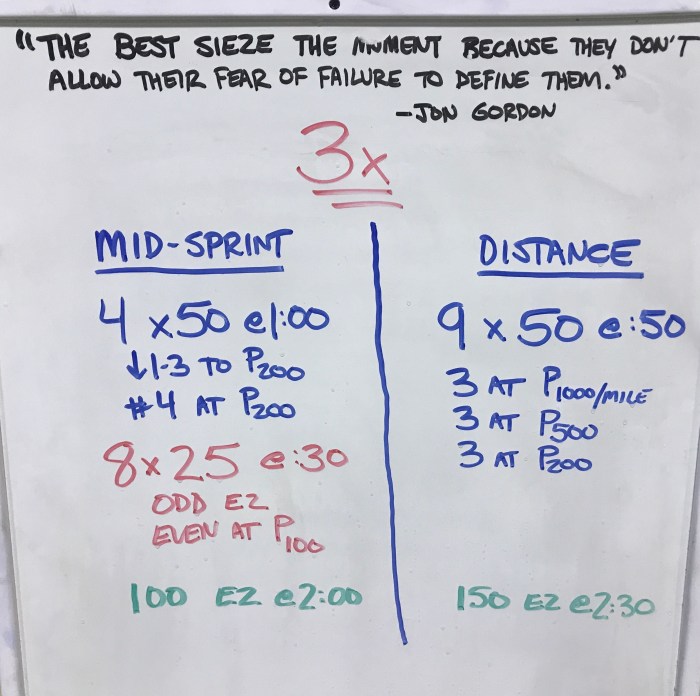 "THE BEST SIEZE THE MOMENT BECAUSE THEY DON'T
ALLOW THEIR FEAR OF FAILURE TO DEFINE THEM."
-JON GORDON
3x
MID-SPRINT
4 x50 @1:00
↓1-3 TO P200
#4 AT P200
8x25 @:30
ODD EZ
EVEN AT P100
100 EZ @2:00
DISTANCE
9 x 50 @:50
3 AT P1000/MILE
3 AT P500
3 AT P200
150 EZ @2:30